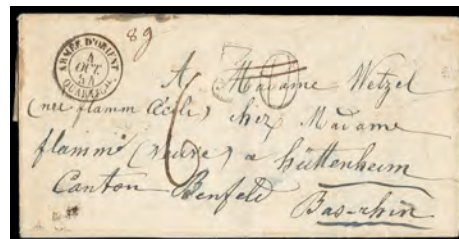 8g
ARMÉE D'ORIENT
4
OCT.
54
30
6
A Madame Wetzel
(née flamm Cécile) chez Madame
flamm (veuve) a hüttenheim
Canton Benfeld
Bas-rhin